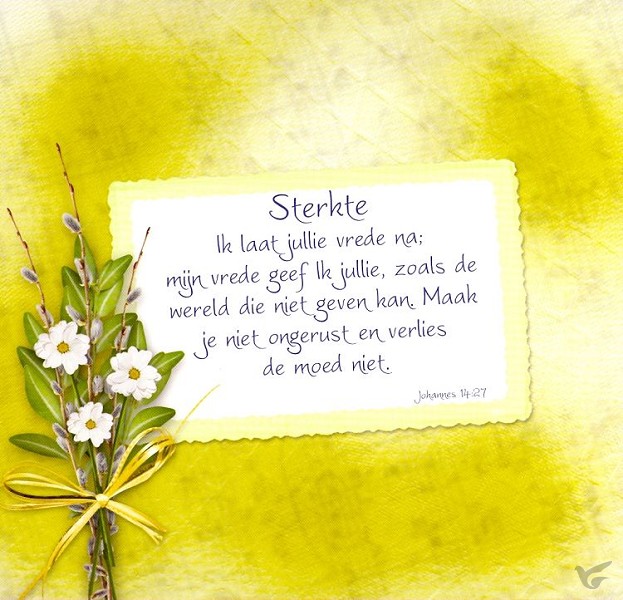 Sterkte
Ik laat jullie vrede na;
mijn vrede geef Ik jullie, zoals de
wereld die niet geven kan. Maak
je niet ongerust en verlies
de moed niet.
Johannes 14:27